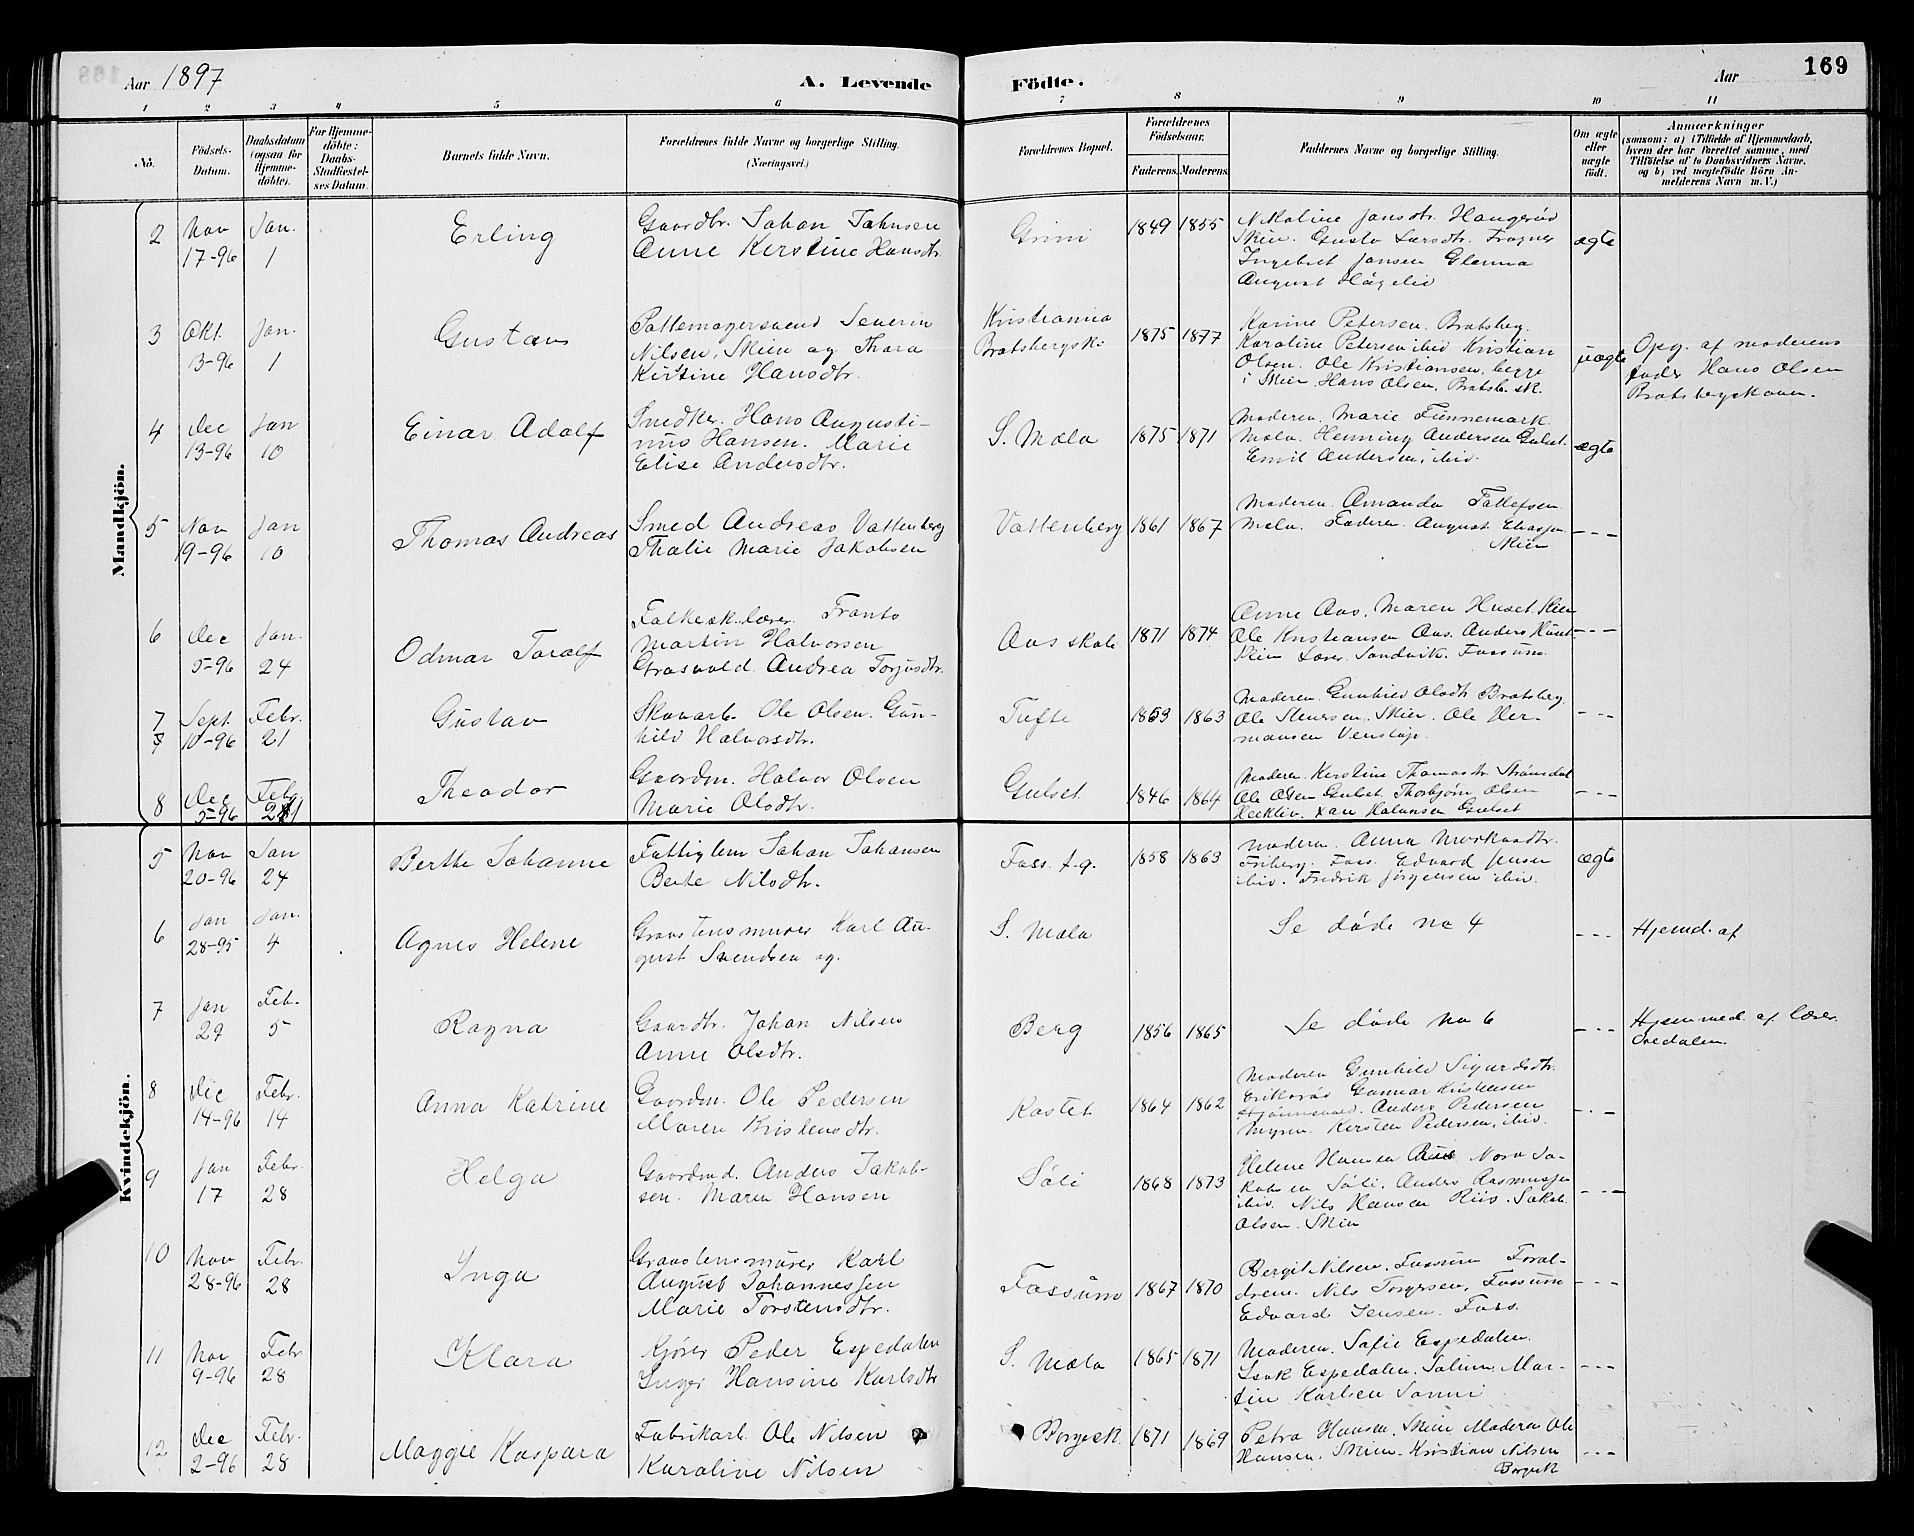 169
Aar 1897 A. Levende Födte. Aar
1 2 3 4 5 6 7 8 9 10 11
No.
Födsels-
Datum.
Daabsdatum
(ogsaa for
Hjemme-
döbte).
For Hjemme-
döbte:
Daabs-
Stadfæstel-
ses Datum.
Barnets fulde Navn.
Forældrenes fulde Navne og borgerlige Stilling.
(Næringsvei.)
Forældrenes Bopæl.
Forældrenes
Födselsaar.
Faderens. Moderens.
Faddernes Navne og borgerlige Stilling.
Om ægte
eller
uægte
födt.
Anmærkninger
(saasom: a) i Tilfælde af Hjemmedaab,
hvem der har forrettet samme, med
Tilföielse af to Daabsvidners Navne,
og b) ved uægtefödte Börn An-
melderens Navn m. V.)
Mandkjön.
2
Nov
17-96
Jan.
1
Erling
Gaardbr. Johan Johnsen
Anne Kirstine Hansdtr.
Grini
1849 1855
Nikoline Jansdtr. Haugerød
Skien. Gusta Larsdtr. Fragner
Ingebret Jansen Glenna
August Hågelid
ægte
3
Okt.
13-96
Jan.
1
Gustav
Pottemagersvend Severin
Nilsen, Skien og Thora
Kirstine Hansdtr.
Kristiania
Bratsbergsk.
1875 1877
Karine Petersen. Bratsberg.
Karoline Petersen ibid Kristian
Olsen. Ole Kristiansen, begge
i Skien, Hans Olsen, Bratsb. sk.
uægte
Opg. af moderens
fader Hans Olsen
Bratsbergskoven.
4
Dec
13-96
Jan
10
Einar Adolf
Smedker. Hans Augusti-
nus Hansen. Marie
Elise Andersdtr.
S. Mæla
1875 1871
Moderen. Marie Funnemark.
Mæla. Henning Andersen Gulset.
Emil Andersen, ibid.
ægte
5
Nov
19-96
Jan
10
Thomas Andreas
Smed Andreas Vattenberg
Thalie Marie Jakobsen
Vattenberg
1861 1867
Moderen. Amanda Tollefsen
Mæla. Faderen. August Eliassen
Skien
---
6
Dec
5-96
Jan.
24
Odmar Toralf
Folkesk.lærer Frants
Martin Halvorsen
Grasvold Andrea Torjusdtr.
Aas skole
1871 1874
Anne Aas. Maren Huset Skien
Ole Kristiansen Aas. Anders Huset
Skien Lærer Sandvik. Fossum.
---
7
Sept.
10-96
Febr.
21
Gustav
Skovarb. Ole Olsen. Gun-
hild Halvorsdtr.
Tufte
1859 1863
Moderen Gunhild Olsdtr Bratsberg
Ole Stensen. Skien. Ole Her-
mansen Venstøp.
---
8
Dec
5-96
Febr
21
Theodor
Gaardm. Halvor Olsen
Marie Olsdtr.
Gulset
1846 1864
Moderen. Kerstine Thomasdtr. Strømdal
Ole Olsen Gulset. Thorbjørn Olsen
Halvorsen Gulset
---
Kvindekjön.
5
Nov
20-96
Jan
24
Berthe Johanne
Fattiglem Johan Johansen
Berte Nilsdtr.
Foss. f.g.
1858 1863
Moderen. Anna Morkasdtr.
Friberg. Foss. Edvard Jensen
ibid. Fredrik Jørgensen ibid.
ægte
6
Jan
28-95
Jan.
4
Agnes Helene
Graastensmurer Karl Au-
gust Svendsen og.
S. Mæla
Se døde no 4
---
Hjemd. af
7
Jan
29
Feb.
5
Ragna
Gaardbr. Johan Nilsen
Anne Olsdtr.
Berg
1856 1865
Se døde no 6
---
Hjemmed. af lærer
8
Dec
14-96
Febr.
14
Anna Katrine
Gaardm. Ole Pedersen
Maren Kristensdtr.
Kastet
1864 1862
Moderen Gunhild Sigurdsdtr.
Eriksrød Gunnar Kristensen
Anders Pedersen
Myren. Kersten Pedersen, ibid.
---
9
Jan
17
Febr.
28
Helga
Gaardmd. Anders Jakob-
sen. Maren Hansen
Søli
1868 1873
Helene Hansen Riis Nora Ja-
kobsen Søli. Anders Rasmussen
ibid. Nils Hansen Riis. Jakob
Olsen. Skien
---
10
Nov
28-96
Febr.
28
Inga
Graastensmurer Karl
August Johannessen
Marie Torstensdtr.
Fossum
1867 1870
Bergit Nilsen. Fossum Foræl-
drene. Nils Torgersen, Fossum
Edvard Jensen. Foss.
---
11
Nov
9-96
Febr
28
Klara
Kjører Peder Espedalen
Inger Hansine Karlsdtr
S. Mæla
1865 1871
Moderen. Sofie Espedalen.
Isak Espedalen. Mar-
tin Karlsen Sanni
---
12
Dec
2-96
Febr.
28
Maggie Kaspara
Fabrikarb. Ole Nilsen
Karoline Nilsen
Borgesk.
1871 1869
Petra Hansen. Skien Moderen Ole
Hansen. Skien. Kristian Nilsen
Borgesk
---